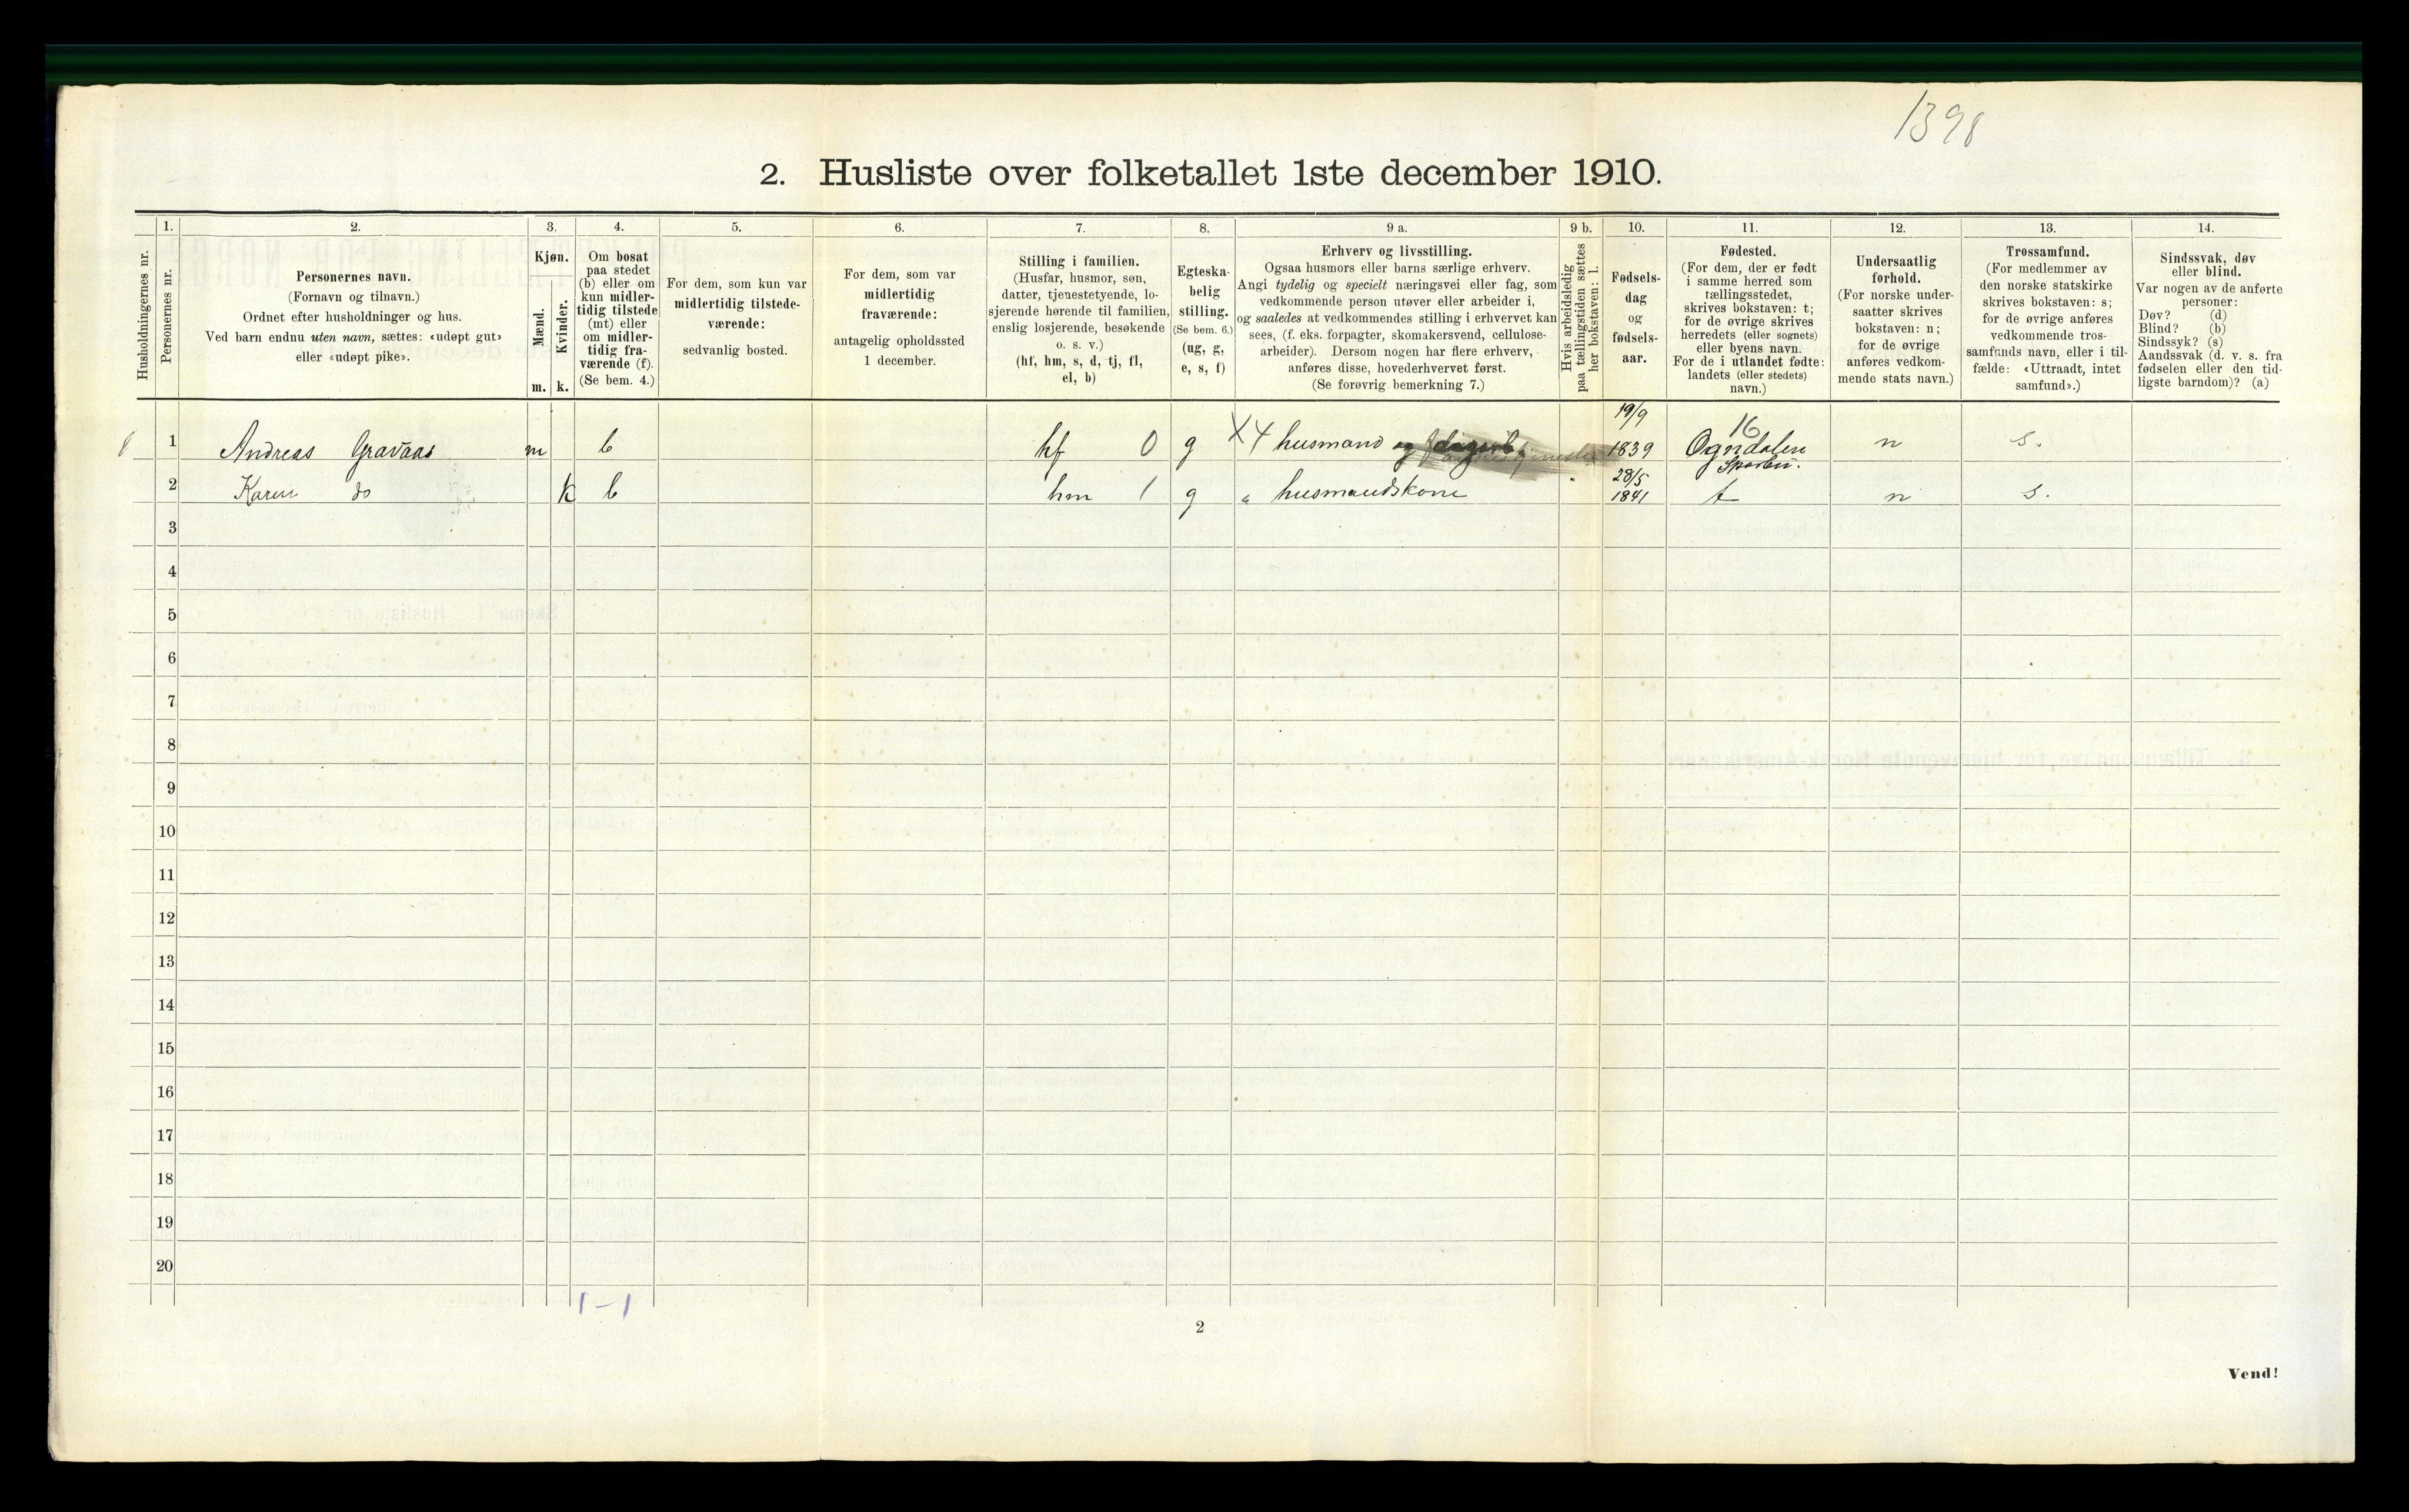 1398
2. Husliste over folketallet 1ste december 1910.
Husholdningernes nr.
1.
Personernes nr.
2.
Personernes navn.
(Fornavn og tilnavn.)
Ordnet efter husholdninger og hus.
Ved barn endnu uten navn, sættes: «udøpt gut»
eller «udøpt pike».
3.
Kjøn.
Mænd. Kvinder.
m. k.
4.
Om bosat
paa stedet
(b) eller om
kun midler-
tidig tilstede
(mt) eller
om midler-
tidig fra-
værende (f).
(Se bem. 4.)
5.
For dem, som kun var
midlertidig tilstede-
værende:
sedvanlig bosted.
6.
For dem, som var
midlertidig
fraværende:
antagelig opholdssted
1 december.
7.
Stilling i familien.
(Husfar, husmor, søn,
datter, tjenestetyende, lo-
sjerende hørende til familien,
enslig losjerende, besøkende
o. s. v.)
(hf, hm, s, d, tj, fl,
el, b)
8.
Egteska-
belig
stilling.
(Se bem. 6.)
(ug, g,
e, s, f)
9 a.
Erhverv og livsstilling.
Ogsaa husmors eller barns særlige erhverv.
Angi tydelig og specielt næringsvei eller fag, som
vedkommende person utøver eller arbeider i,
og saaledes at vedkommendes stilling i erhvervet kan
sees, (f. eks. forpagter, skomakersvend, cellulose-
arbeider). Dersom nogen har flere erhverv,
anføres disse, hovederhvervet først.
(Se forøvrig bemerkning 7.)
9 b.
Hvis arbeidsledig
paa tællingstiden sættes
her bokstaven: l.
10.
Fødsels-
dag
og
fødsels-
aar.
11.
Fødested.
(For dem, der er født
i samme herred som
tællingsstedet,
skrives bokstaven: t;
for de øvrige skrives
herredets (eller sognets)
eller byens navn.
For de i utlandet fødte:
landets (eller stedets)
navn.)
12.
Undersaatlig
forhold.
(For norske under-
saatter skrives
bokstaven: n;
for de øvrige
anføres vedkom-
mende stats navn.)
13.
Trossamfund.
(For medlemmer av
den norske statskirke
skrives bokstaven: s;
for de øvrige anføres
vedkommende tros-
samfunds navn, eller i til-
fælde: «Uttraadt, intet
samfund».)
14.
Sindssvak, døv
eller blind.
Var nogen av de anførte
personer:
Døv? (d)
Blind? (b)
Sindssyk? (s)
Aandssvak (d. v. s. fra
fødselen eller den tid-
ligste barndom)? (a)
19/9 16
1 Andreas Gravaas m b hf 0 g X4 husmand og 1839 Ogndalen n s.
28/5 Sparbu.
2 Karen do k b hm 1 g " husmandskone 1841 t n s.
3
4
5
6
7
8
9
10
11
12
13
14
15
16
17
18
19
20
1-1
2
Vend!